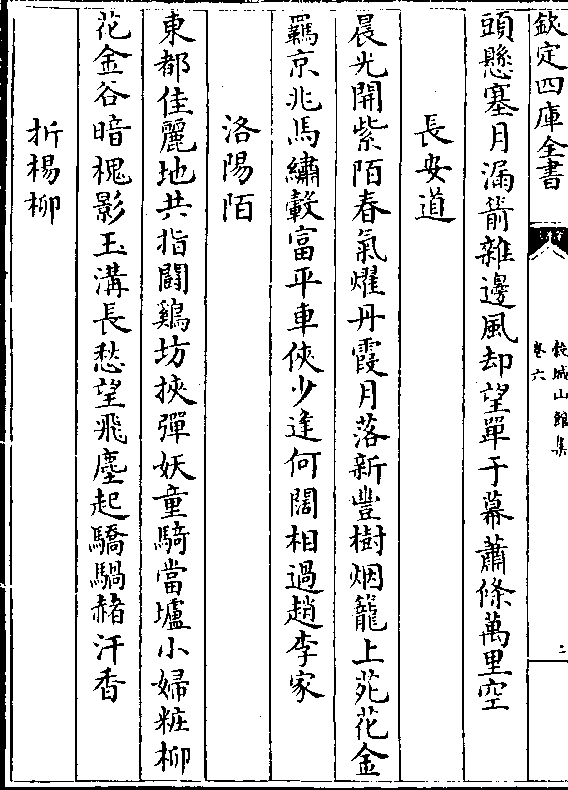 欽定四庫全書
穀城山館集
卷六
二
頭懸塞月漏箭雜邊風却望單于幕蕭條萬里空
長安道
晨光開紫陌春氣燿丹霞月落新豐樹烟籠上苑花金
羈京兆馬繡轂富平車俠少逢何闊相過趙李家
洛陽陌
東都佳麗地共指鬬鷄坊挾彈妖童騎當壚小婦粧柳
花金谷暗槐影玉溝長愁望飛塵起驕騧赭汗香
折楊柳